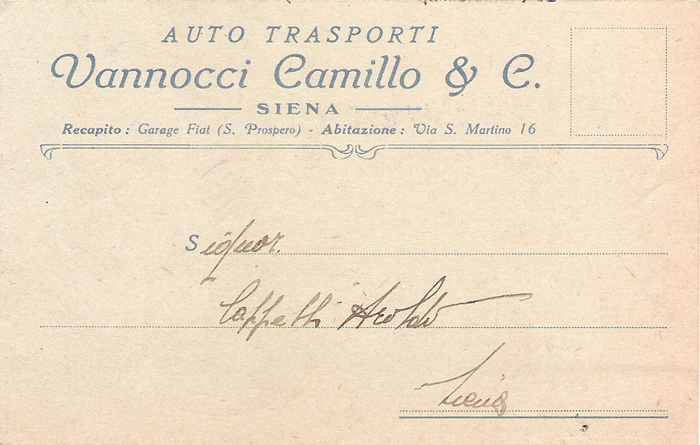 AUTO TRASPORTI
Vannocci Camillo & C.
SIENA
Recapito: Garage Fiat (S. Prospero) - Abitazione: Via S. Martino 16
Signor.
Cappelli Aroldo
Siena